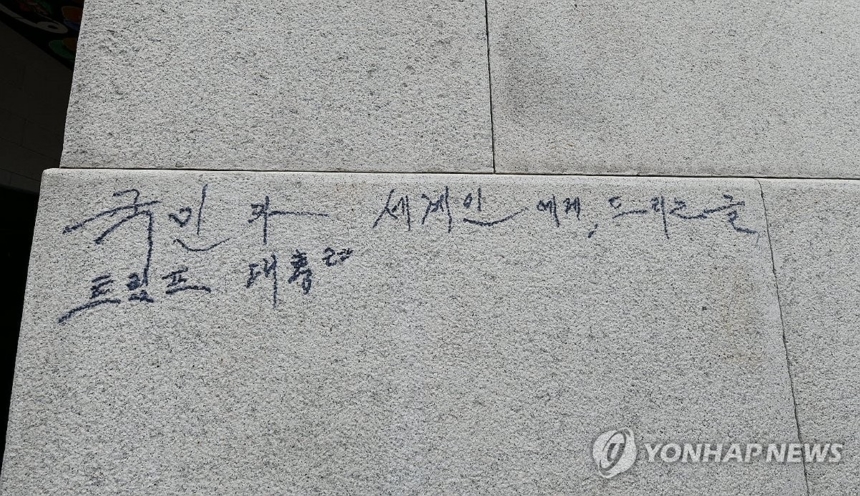 국민과 세계인에게, 드리는 글,
트럼프 대통령
YONHAP NEWS